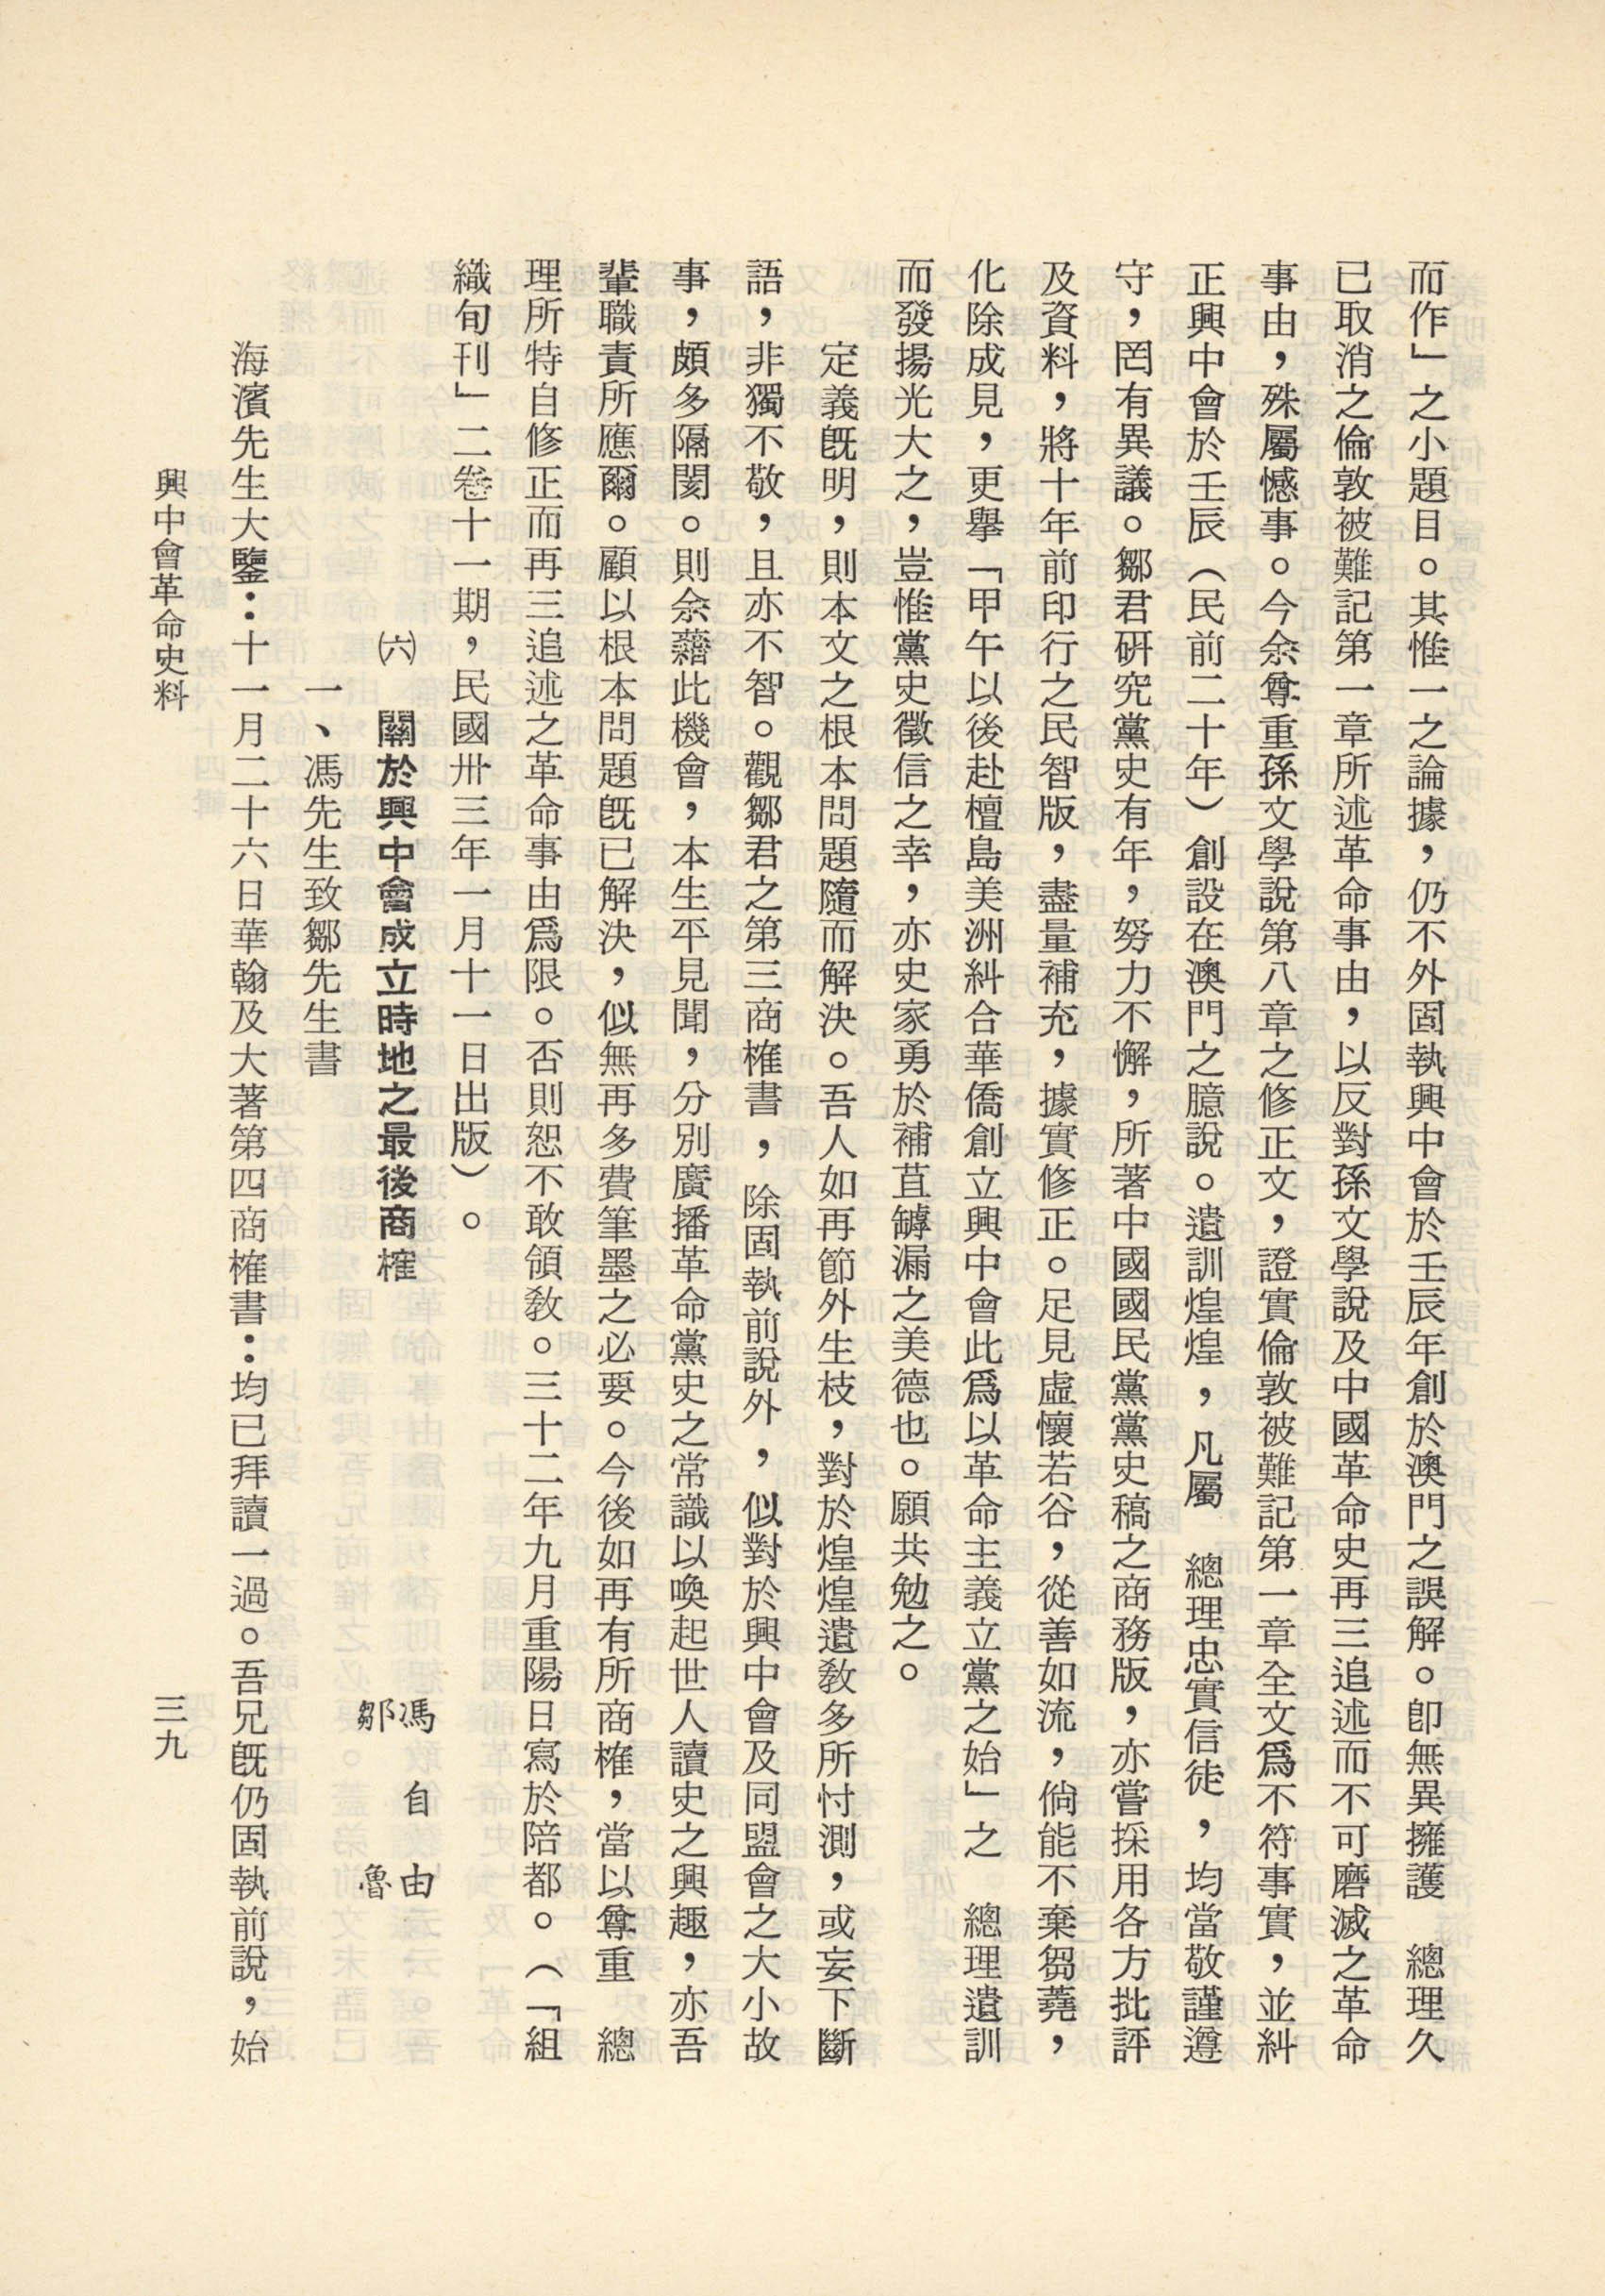 而作」之小題目。其惟一之論據，仍不外固執興中會於壬辰年創於澳門之誤解。卽無異擁護　總理久
已取消之倫敦被難記第一章所述革命事由，以反對孫文學說及中國革命史再三追述而不可磨滅之革命
事由，殊屬憾事。今余尊重孫文學說第八章之修正文，證實倫敦被難記第一章全文爲不符事實，並糾
正興中會於壬辰（民前二十年）創設在澳門之臆說。遺訓煌煌，凡屬　總理忠實信徒，均當敬謹遵
守，罔有異議。鄒君研究黨史有年，努力不懈，所著中國國民黨黨史稿之商務版，亦嘗採用各方批評
及資料，將十年前印行之民智版，盡量補充，據實修正。足見虛懷若谷，從善如流，倘能不棄芻蕘，
化除成見，更舉「甲午以後赴檀島美洲糾合華僑創立興中會此爲以革命主義立黨之始」之　總理遺訓
而發揚光大之，豈惟黨史徵信之幸，亦史家勇於補苴罅漏之美德也。願共勉之。
定義旣明，則本文之根本問題隨而解決。吾人如再節外生枝，對於煌煌遺敎多所忖測，或妄下斷
語，非獨不敬，且亦不智。觀鄒君之第三商榷書，除固執前說外，似對於興中會及同盟會之大小故
事，頗多隔閡。則余藉此機會，本生平見聞，分別廣播革命黨史之常識以喚起世人讀史之興趣，亦吾
輩職責所應爾。顧以根本問題旣已解決，似無再多費筆墨之必要。今後如再有所商榷，當以尊重　總
理所特自修正而再三追述之革命事由爲限。否則恕不敢領敎。三十二年九月重陽日寫於陪都。（「組
織旬刊」二卷十一期，民國卅三年一月十一日出版）。
㈥　關於興中會成立時地之最後商榷
馮自由
鄒魯
一、馮先生致鄒先生書
海濱先生大鑒：十一月二十六日華翰及大著第四商榷書：均已拜讀一過。吾兄旣仍固執前說，始
興中會革命史料
三九